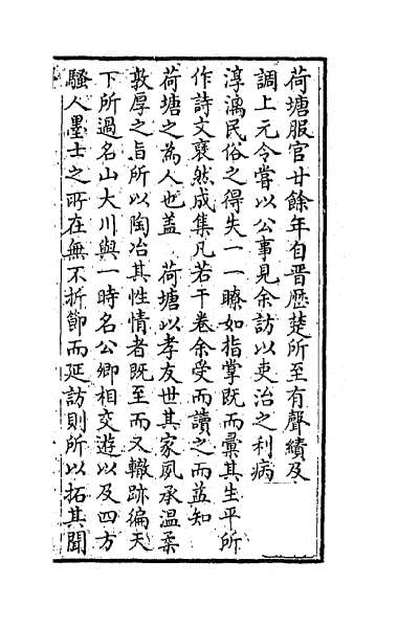 荷塘服官廿餘年自晋歷楚所至有聲績及
調上元令嘗以公事見余訪以吏治之利病
淳漓民俗之得失一一瞭如指掌既而彚其生平所
作詩文裒然成集凡若干卷余受而讀之而益知
荷塘之為人也蓋 荷塘以孝友世其家夙承温柔
敦厚之旨所以陶冶其性情者既至而又轍跡徧天
下所過名山大川與一時名公卿相交遊以及四方
騷人墨士之所在無不折節而延訪則所以拓其聞